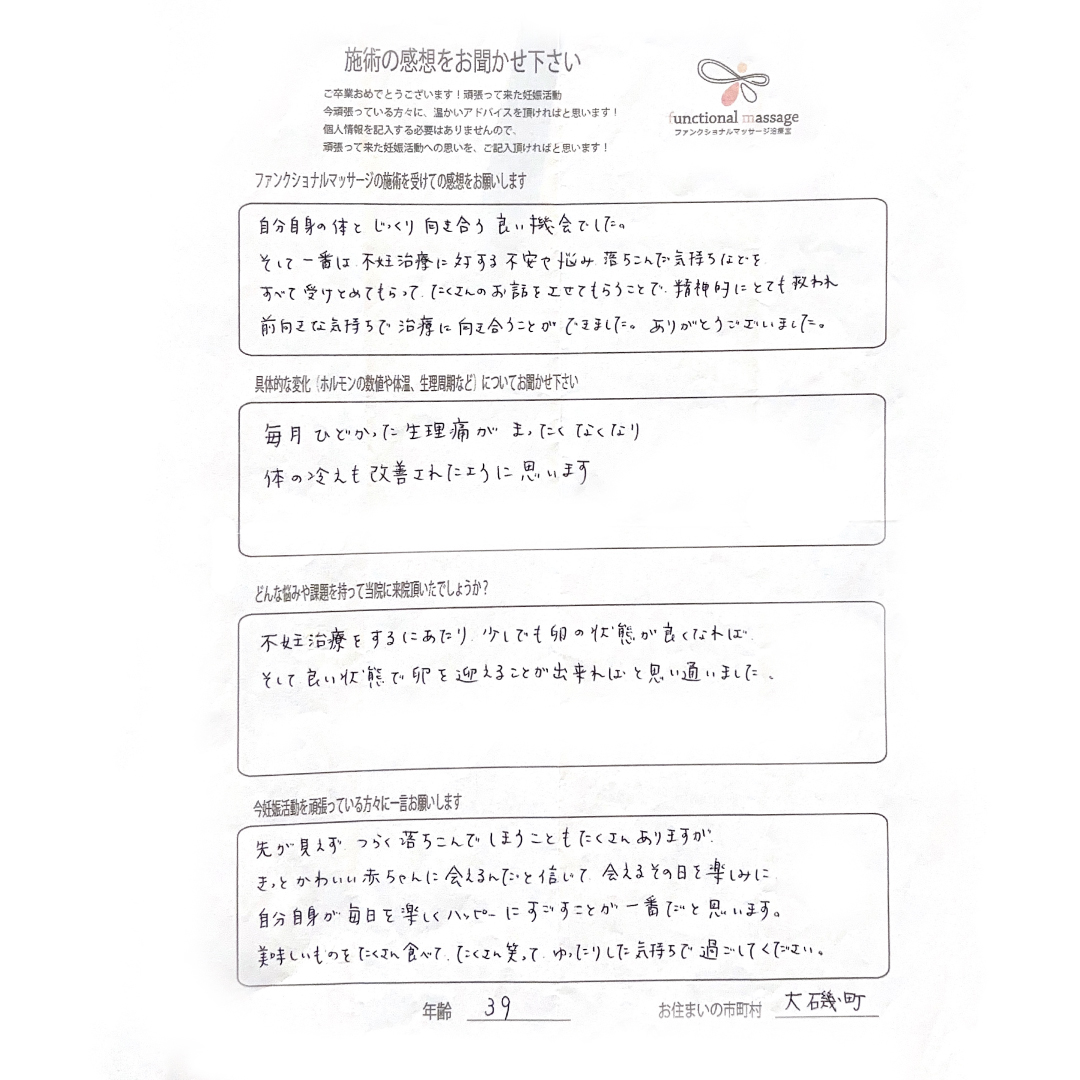 施術の感想をお聞かせ下さい
ご卒業おめでとうございます！頑張って来た妊娠活動
今頑張っている方々に、温かいアドバイスを頂ければと思います！
個人情報を記入する必要はありませんので、
頑張って来た妊娠活動への思いを、ご記入頂ければと思います！
functional massage
ファンクショナルマッサージ治療室
ファンクショナルマッサージの施術を受けての感想をお願いします
自分自身の体と じっくり 向き合う 良い機会でした。
そして一番は 不妊治療に対する不安や悩み 落ちこんだ気持ちなどを
すべて受けとめてもらって、たくさんのお話をさせてもらうことで、精神的にとても救われ
前向きな気持ちで治療に向き合うことができました。ありがとうございました。
具体的な変化（ホルモンの数値や体温、生理周期など）についてお聞かせ下さい
毎月ひどかった生理痛がまったくなくなり
体の冷えも改善されたように思います
どんな悩みや課題を持って当院に来院頂いたでしょうか？
不妊治療をするにあたり、少しでも卵の状態が良くなれば、
そして良い状態で卵を迎えることが出来ればと思い通いました。
今妊娠活動を頑張っている方々に一言お願いします
先が見えず つらく落ちこんでしまうこともたくさんありますが、
きっとかわいい赤ちゃんに会えるんだと信じて、会えるその日を楽しみに
自分自身が毎日を楽しくハッピーにすごすことが一番だと思います。
美味しいものをたくさん食べて、たくさん笑って、ゆったりした気持ちで過ごしてください。
年齢 39 お住まいの市町村 大磯町